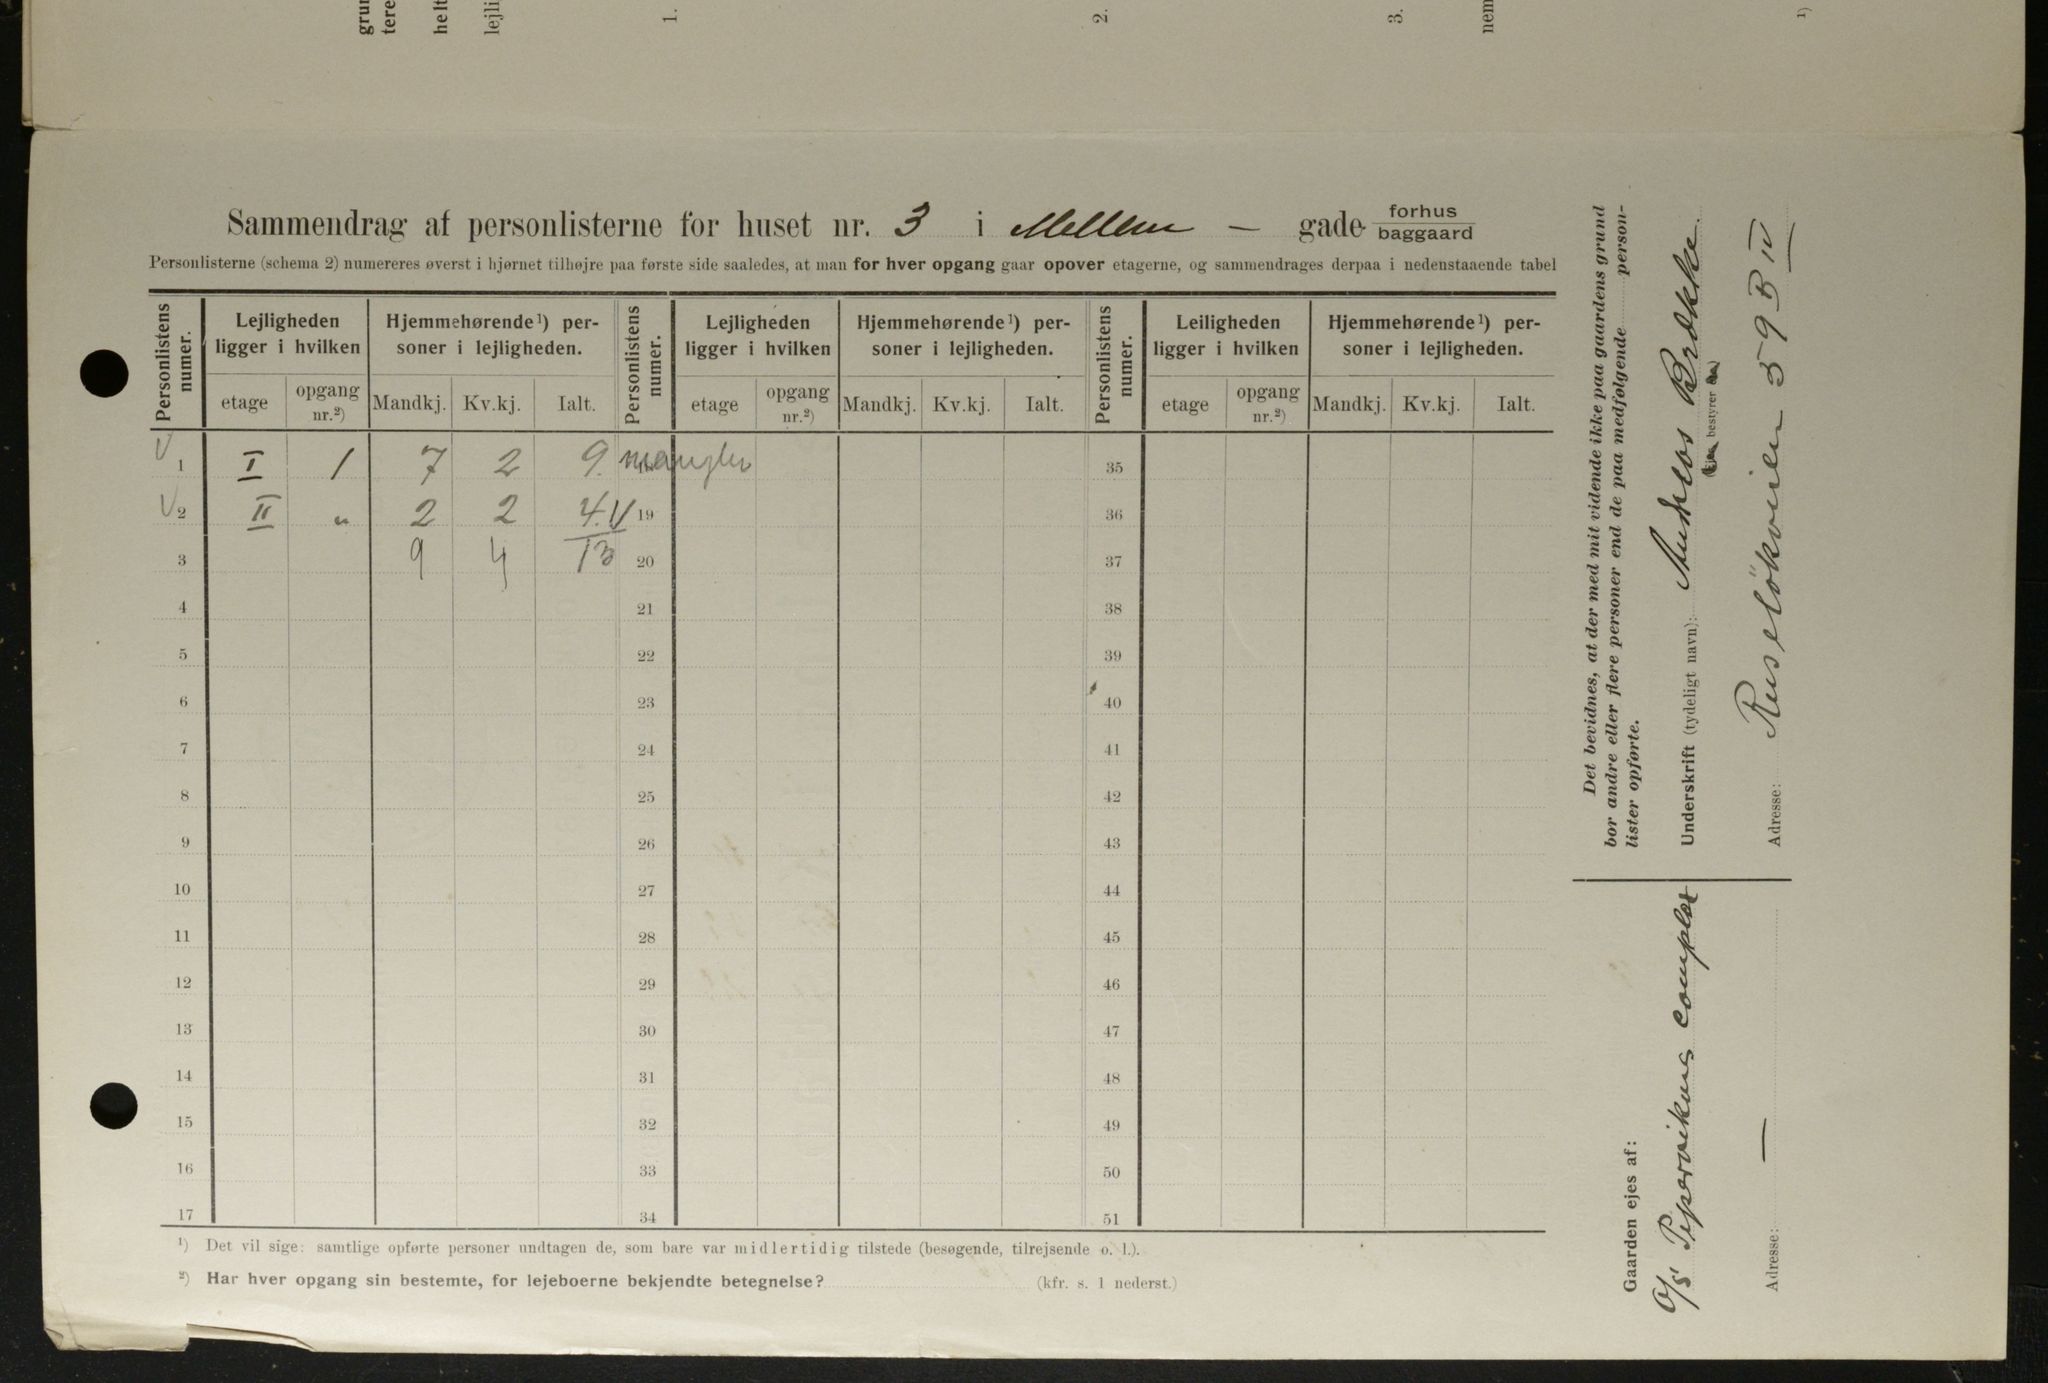 grun
tere
helt
lejli
1.
2.
3.
nem
¹)
Sammendrag af personlisterne for huset nr. 3 i Mellem — gade forhus baggaard
Personlisterne (schema 2) numereres øverst i hjørnet tilhøjre paa første side saaledes, at man for hver opgang gaar opover etagerne, og sammendrages derpaa i nedenstaaende tabel
Personlistens numer. Lejligheden ligger i hvilken Hjemmehørende¹) personer i lejligheden. Personlistens numer. Lejligheden ligger i hvilken Hjemmehørende¹) personer i lejligheden. Personlistens numer. Leiligheden ligger i hvilken Hjemmehørende¹) personer i lejligheden.
etage opgang nr.²) Mandkj. Kv.kj. Ialt. etage opgang nr.²) Mandkj. Kv.kj. Ialt. etage opgang nr.²) Mandkj. Kv.kj. Ialt.
V 1 I 1 7 2 9. mangler 35
V 2 II " 2 2 4. V 19 36
3 9 4 13 20 37
4 21 38
5 22 39
6 23 40
7 24 41
8 25 42
9 26 43
10 27 44
11 28 45
12 29 46
13 30 47
14 31 48
15 32 49
16 33 50
17 34 51
¹) Det vil sige: samtlige opførte personer undtagen de, som bare var midlertidig tilstede (besøgende, tilrejsende o. l.).
²) Har hver opgang sin bestemte, for lejeboerne bekjendte betegnelse? (kfr. s. 1 nederst.)
Det bevidnes, at der med mit vidende ikke paa gaardens grund
bor andre eller flere personer end de paa medfølgende person-
lister opførte.
Underskrift (tydeligt navn): Andreas Brække
bestyrer
Adresse: Russeløkveien 59 B IV
Gaarden ejes af:
O/S Pipervikens complex
Adresse: —